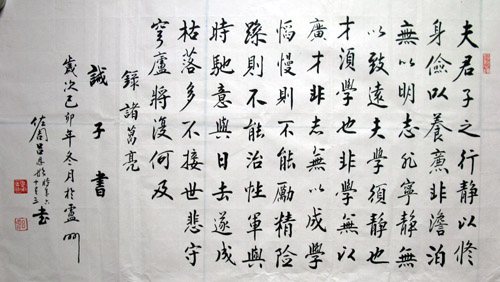 夫君子之行靜以修
身儉以養廉非澹泊
無以明志非寧靜無
以致遠夫學須靜也
才須學也非學無以
廣才非志無以成學
慆慢則不能勵精險
躁則不能治性年與
時馳意與日去遂成
枯落多不接世悲守
穹廬將復何及
錄諸葛亮
誡子書
歲次己卯年冬月於盧州
呂時年六十三書